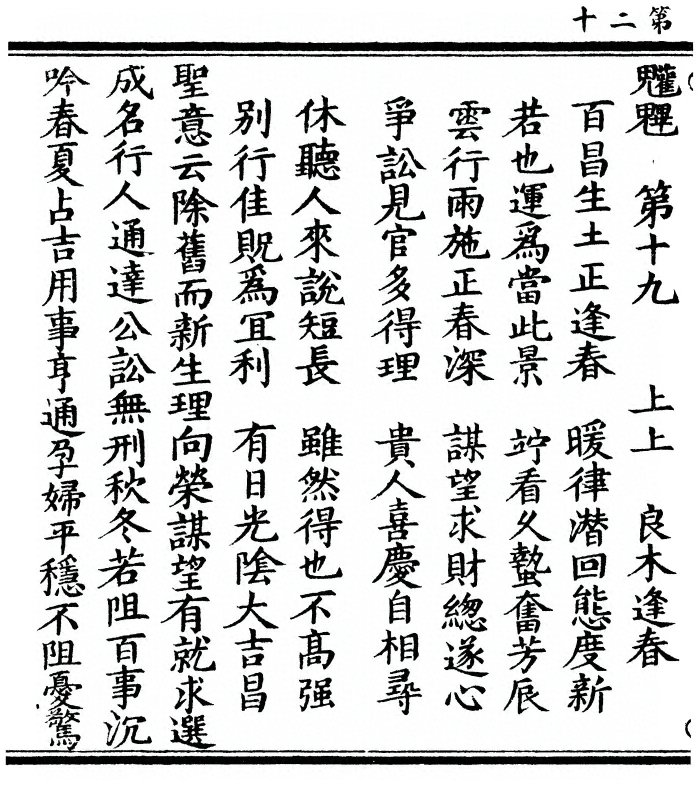 第二十
第十九 上上 良木逢春
百昌生土正逢春 暖律潛回態度新
若也運爲當此景 竚看久蟄奮芳辰
雲行雨施正春深 謀望求財總遂心
爭訟見官多得理 貴人喜慶自相尋
休聽人來說短長 雖然得也不高强
别行佳貺爲宜利 有日光陰大吉昌
聖意云除舊而新生理向榮謀望有就求選
成名行人通達公訟無刑秋冬若阻百事沉
吟春夏占吉用事亨通孕婦平穩不阻憂驚